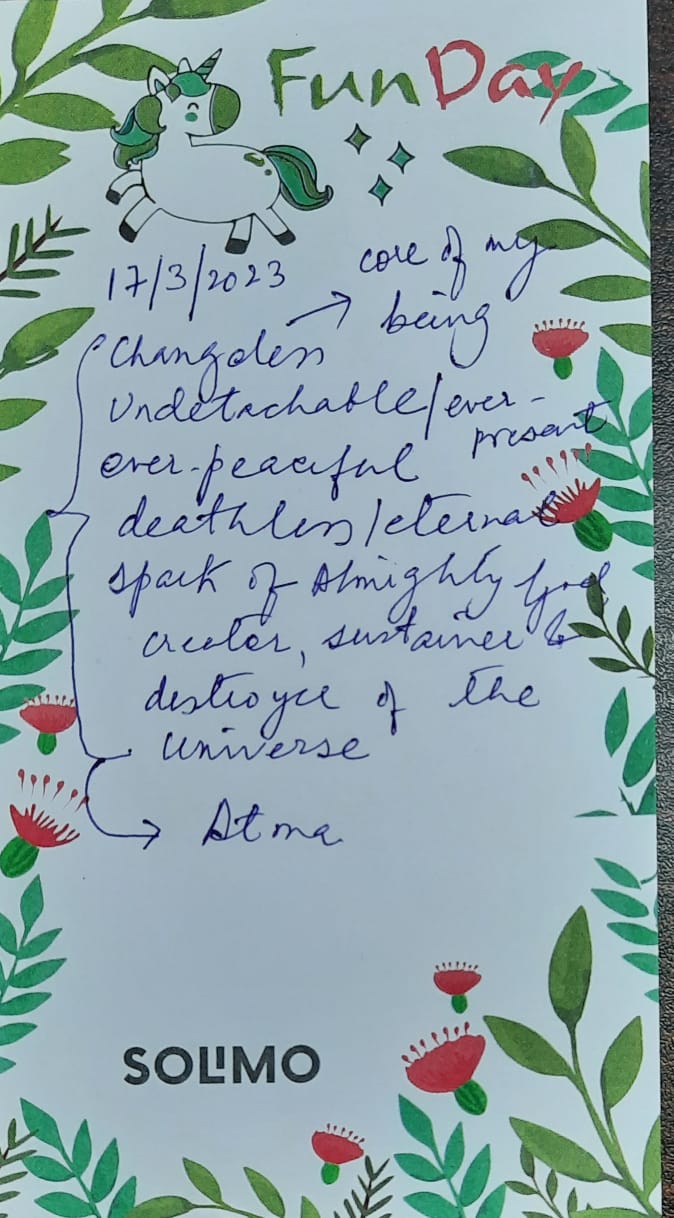 FunDay
17/3/2023
core of my
being
Changeless →
Undetachable/ever-
present
ever-peaceful
deathless/eternal
spark of Almighty God
creator, sustainer &
destroyer of the
universe
→ Atma
SOLIMO